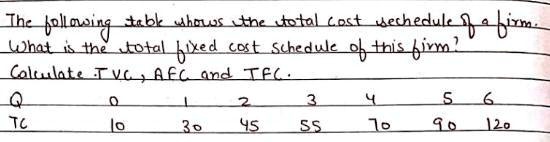 The following table whows the total cost sechedule of a firm.
What is the total fixed cost schedule of this firm?
Calculate TVC, AFC and TFC.
Q 0 1 2 3 4 5 6
TC 10 30 45 55 70 90 120